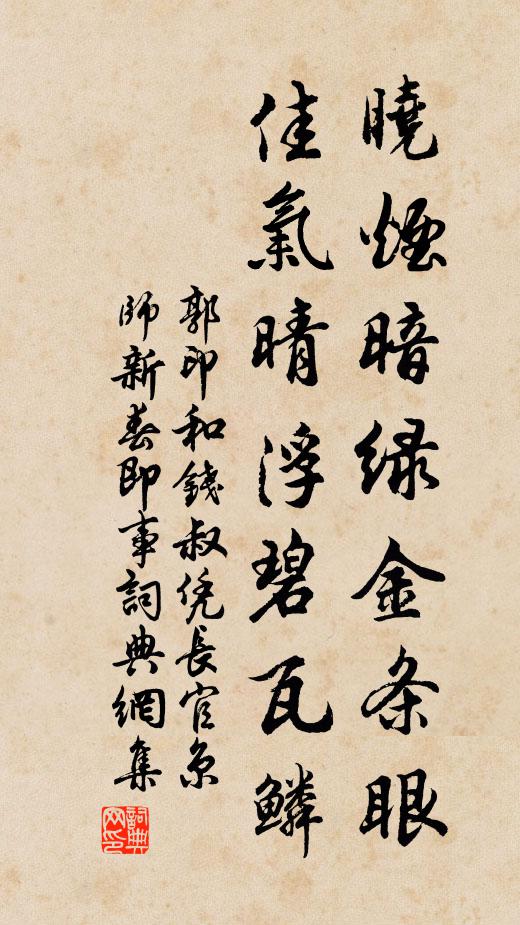 曉煙暗綠金条眼
佳氣晴浮碧瓦鱗
郭印和錢叔凭長官京
師新春即事詞典網集
詞典网印